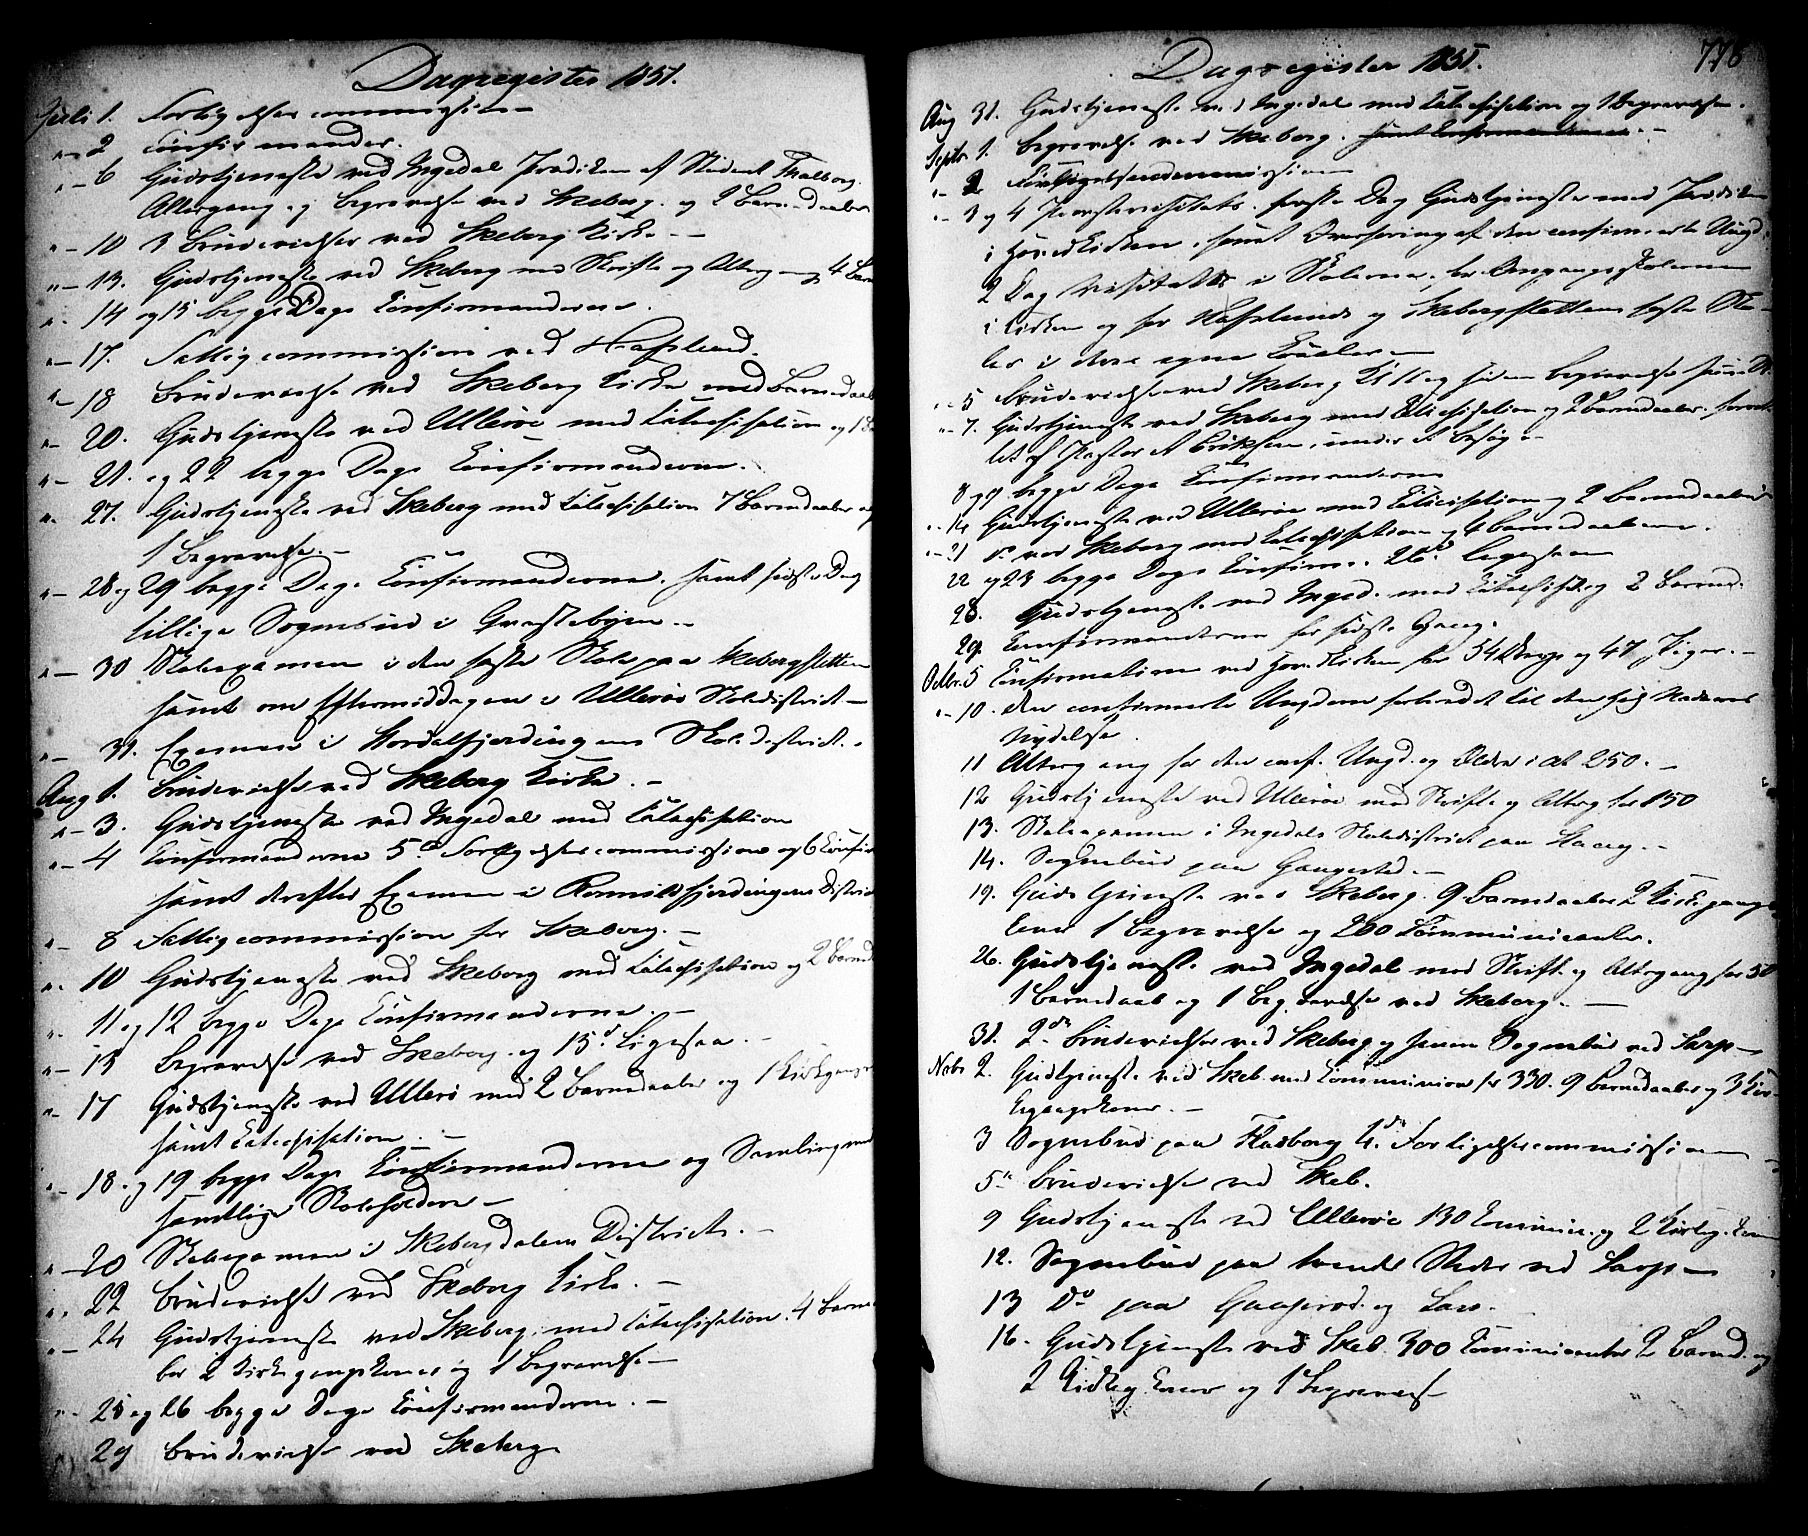 Dagsregister 1851.
Juli 1. Forligelsescommission
"- 2 Confirmander.
"- 6 Gudstjeneste ved Ingedal Prædiken af Student Thalberg
Altergang og Begravelse ved Skeberg. og 2 Barnedaaber
"- 10 3 Brudevielser ved Skeberg Kirke -
"- 13. Gudstjeneste ved Skeberg med Skrifte og Alterg og 4 Barn
"- 14 og 15 begge Dage Confirmanderne.
"- 17. Fattigcommission ved Hafslund.
"- 18 Brudevielse ved Skeberg Kirke med Barnedaab
"- 20. Gudstjeneste ved Ullerøe med Catechisation og 1 Ba
"- 21. og 22 begge Dage Confirmanderne.
"- 27. Gudstjeneste ved Skeberg med Catechisation 7 Barnedaaber og
1 Begravelse. -
"- 28 og 29 begge Dage Confirmanderne. samt sidste Dag
tillige Sognebud i Græstebyen. -
"- 30 Skoleexamen i den faste Skole paa Skebergsletten
samt om Eftermiddagen i Ullerøe Skoledistrict -
"- 31. Examen i Hordalfjerdingens Skoledistrict. -
Aug 1. Brudevielse ved Skeberg Kirke. -
"- 3. Gudstjeneste ved Ingedal med Catechisation
"- 4 Confirmanderne 5te Forligelsescommission og 6 Confir
samt derefter Examen i Fjerdingens District
"- 8 Fattigcommission for Skeberg. -
"- 10 Gudstjeneste ved Skeberg med Catechisation og 2 Barned
"- 11 og 12 begge Dage Confirmanderne. -
"- 13 Begravelse ved Skeberg. og 15d Ligesaa. -
"- 17 Gudstjeneste ved Ullerø med 2 Barnedaaber og 1 Kirkegangs
samt Catechisation. -
"- 18. og 19 begge Dage Confirmanderne og Samling med
samtlige Skoleholdere -
"- 20 Skoleexamen i Skebergdalens District. -
"- 22 Brudevielse ved Skeberg Kirke. -
"- 24 Gudstjeneste ved Skeberg. med Catechisation. 4 Barne
ber 2 Kirkegangskoner og 1 Begravelse -
"- 25 og 26 begge Dage Confirmanderne. -
29 Brudevielse ved Skeberg
Dagsregister 1851.
776
Aug 31. Gudstjeneste ved Ingedal med Catechisation og 1 Begravelse.
Septbr 1. Begravelse ved Skeberg. samt Confirmanderne. -
"- 2 Forligelsescommission
"- 3 og 4 Provstevisitats. første Dag Gudstjeneste med Prædiken
i Hovedkirken, samt Overhøring af den confirmerte Ungd.
2 Dag Visitats i Skolerne, for Omgangsskolerne
i Kirken og for Hafslunds og Skebergslettens faste Sko-
ler i deres egne Locales -
"- 5 Brudevielse ved Skeberg Begravelse
"- 7. Gudstjeneste ved Skeberg med Catechisation og 2 Barnedaaber. forret-
tet af Pastor A Eriksen, under et Besøg -
8 og 9 begge Dage Confirmanderne
"- 14 Gudstjeneste ved Ullerøe med Catechisation og 2 Barnedaaber
"- 21 do ved Skeberg med Catechisation og 4 Barnedaaberne.
22 og 23 begge Dage Confirm. 26d ligesaa
28. Gudstjeneste ved Inged. med Catechisat. og 2 Barned.
29. Confirmanderne for sidste Gang.
Octbr. 5 Confirmation ved Hov. Kirken for 54 Drenge og 47 Piger. -
"- 10. den confirmerte Ungdom forberedet til den hlg Nadveres
Nydelse.
11 Altergang for den conf. Ungd. og Ældre i alt 250. -
12 Gudstjeneste ved Ullerøe med Skrifte og Alterg for 150
13. Skoleexamen i Ingedals Skoledistrict paa Haug. -
14. Sognebud paa -
19. Gudstjeneste ved Skeberg. 9 Barnedaaber 2 Kirkegangs
koner 1 Begravelse og 200 Communicanter.
26. Gudstjeneste ved Ingedal med Skrift og Altergang for 50
1 Barnedaab og 1 Begravelse ved Skeberg. -
31. 2de Brudevielser ved Skeberg og senere Sognebud ved Sarp -
Novbr 2. Gudstjeneste ved Skeb. med Communion for 330. 9 Barnedaaber og 3 Kir-
kegangskoner. -
3 Sognebud paa 4de Forligelsescommission -
5te Brudevielse ved Skeb.
9 Gudstjeneste ved Ullerøe 130 Commun. og 2 Kirkeg. kon
12. Sognebud paa tvende Steder ved Sarp -
13 Do paa og -
16. Gudstjeneste ved Skeb. 300 Communicanter 2 Barned. og
2 Kirkeg. koner og 1 Begravelse